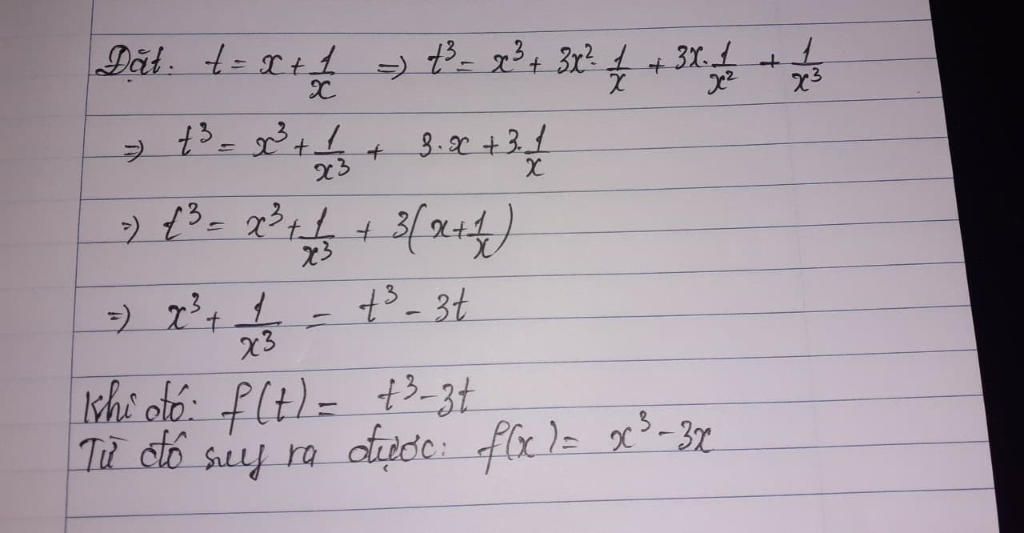 Đặt: t = x + 1/x => t³ = x³ + 3x²·1/x + 3x·1/x² + 1/x³
=> t³ = x³ + 1/x³ + 3·x + 3·1/x
=> t³ = x³ + 1/x³ + 3(x + 1/x)
=> x³ + 1/x³ = t³ - 3t
Khi đó: f(t) = t³ - 3t
Từ đó suy ra được: f(x) = x³ - 3x